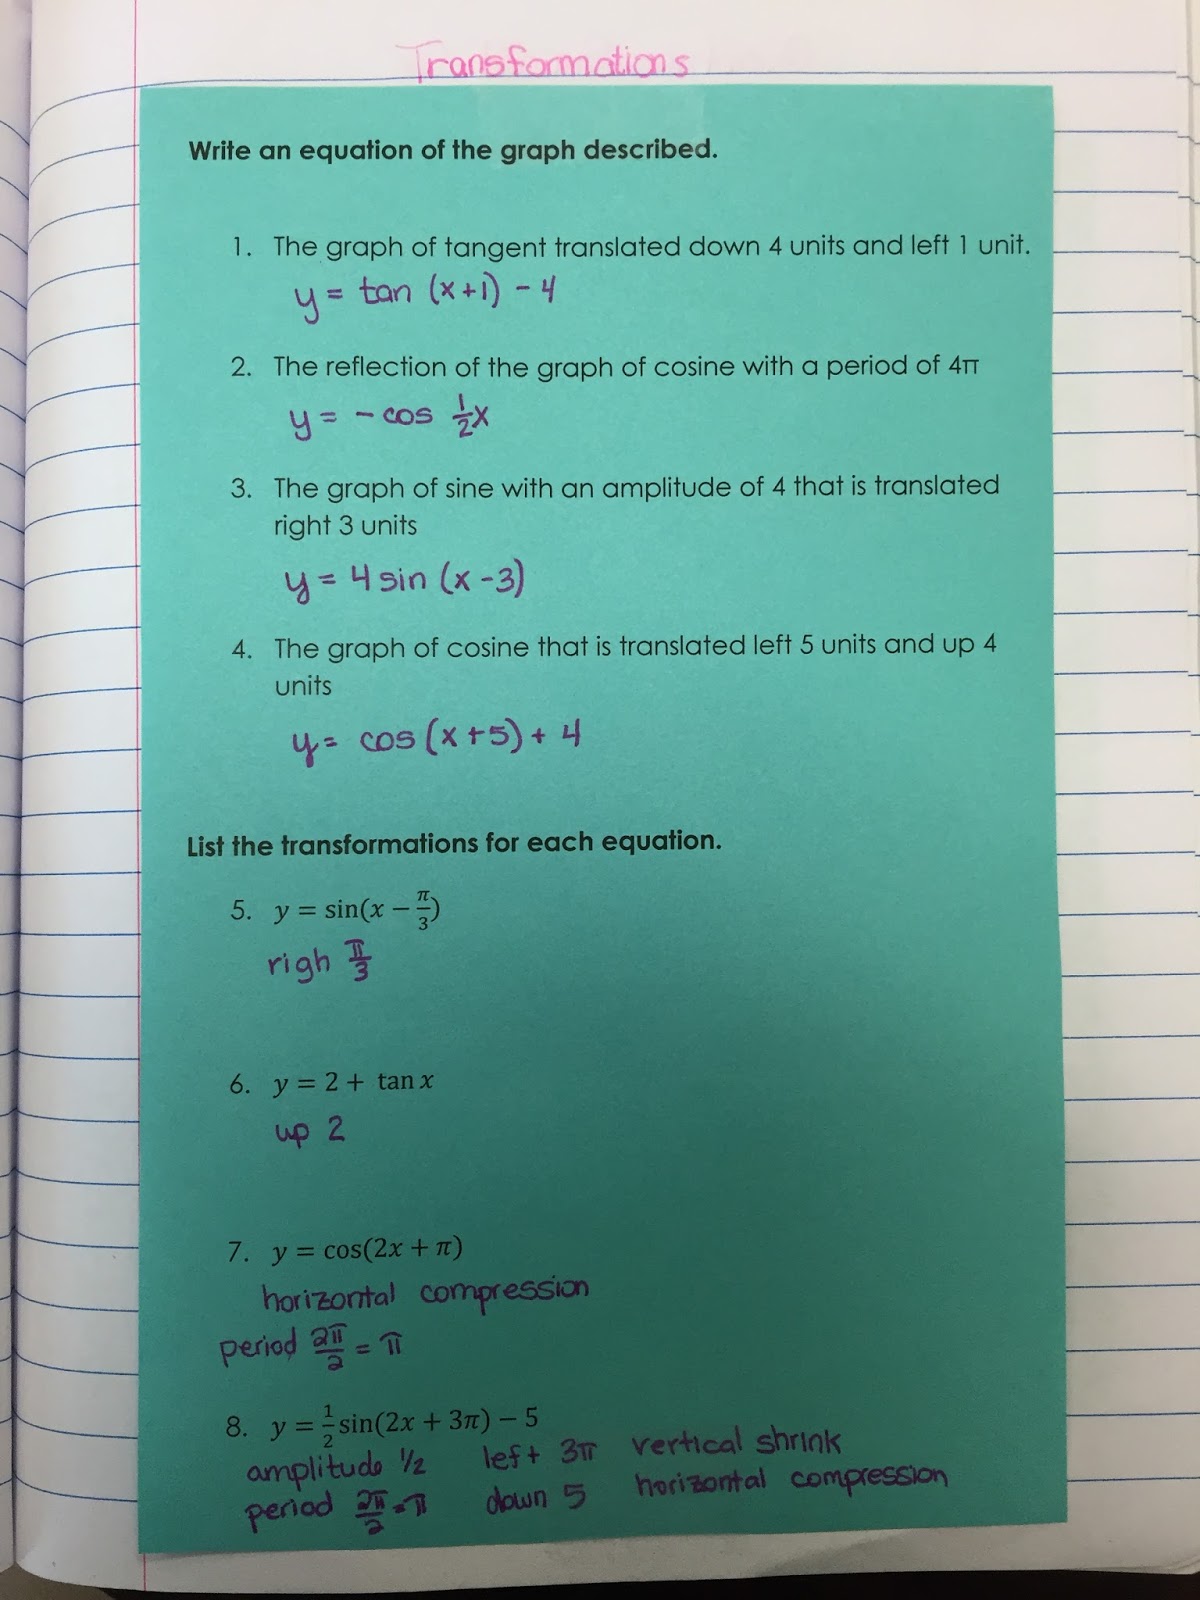 Transformations
Write an equation of the graph described.
1. The graph of tangent translated down 4 units and left 1 unit.
y = tan (x+1) - 4
2. The reflection of the graph of cosine with a period of 4π
y = - cos 1/2 x
3. The graph of sine with an amplitude of 4 that is translated
right 3 units
y = 4 sin (x - 3)
4. The graph of cosine that is translated left 5 units and up 4
units
y = cos (x + 5) + 4
List the transformations for each equation.
5. y = sin(x − π/3)
righ π/3
6. y = 2 + tan x
up 2
7. y = cos(2x + π)
horizontal compression
period 2π/2 = π
8. y = 1/2 sin(2x + 3π) − 5
amplitude 1/2 left 3π vertical shrink
period 2π/2 = π down 5 horizontal compression